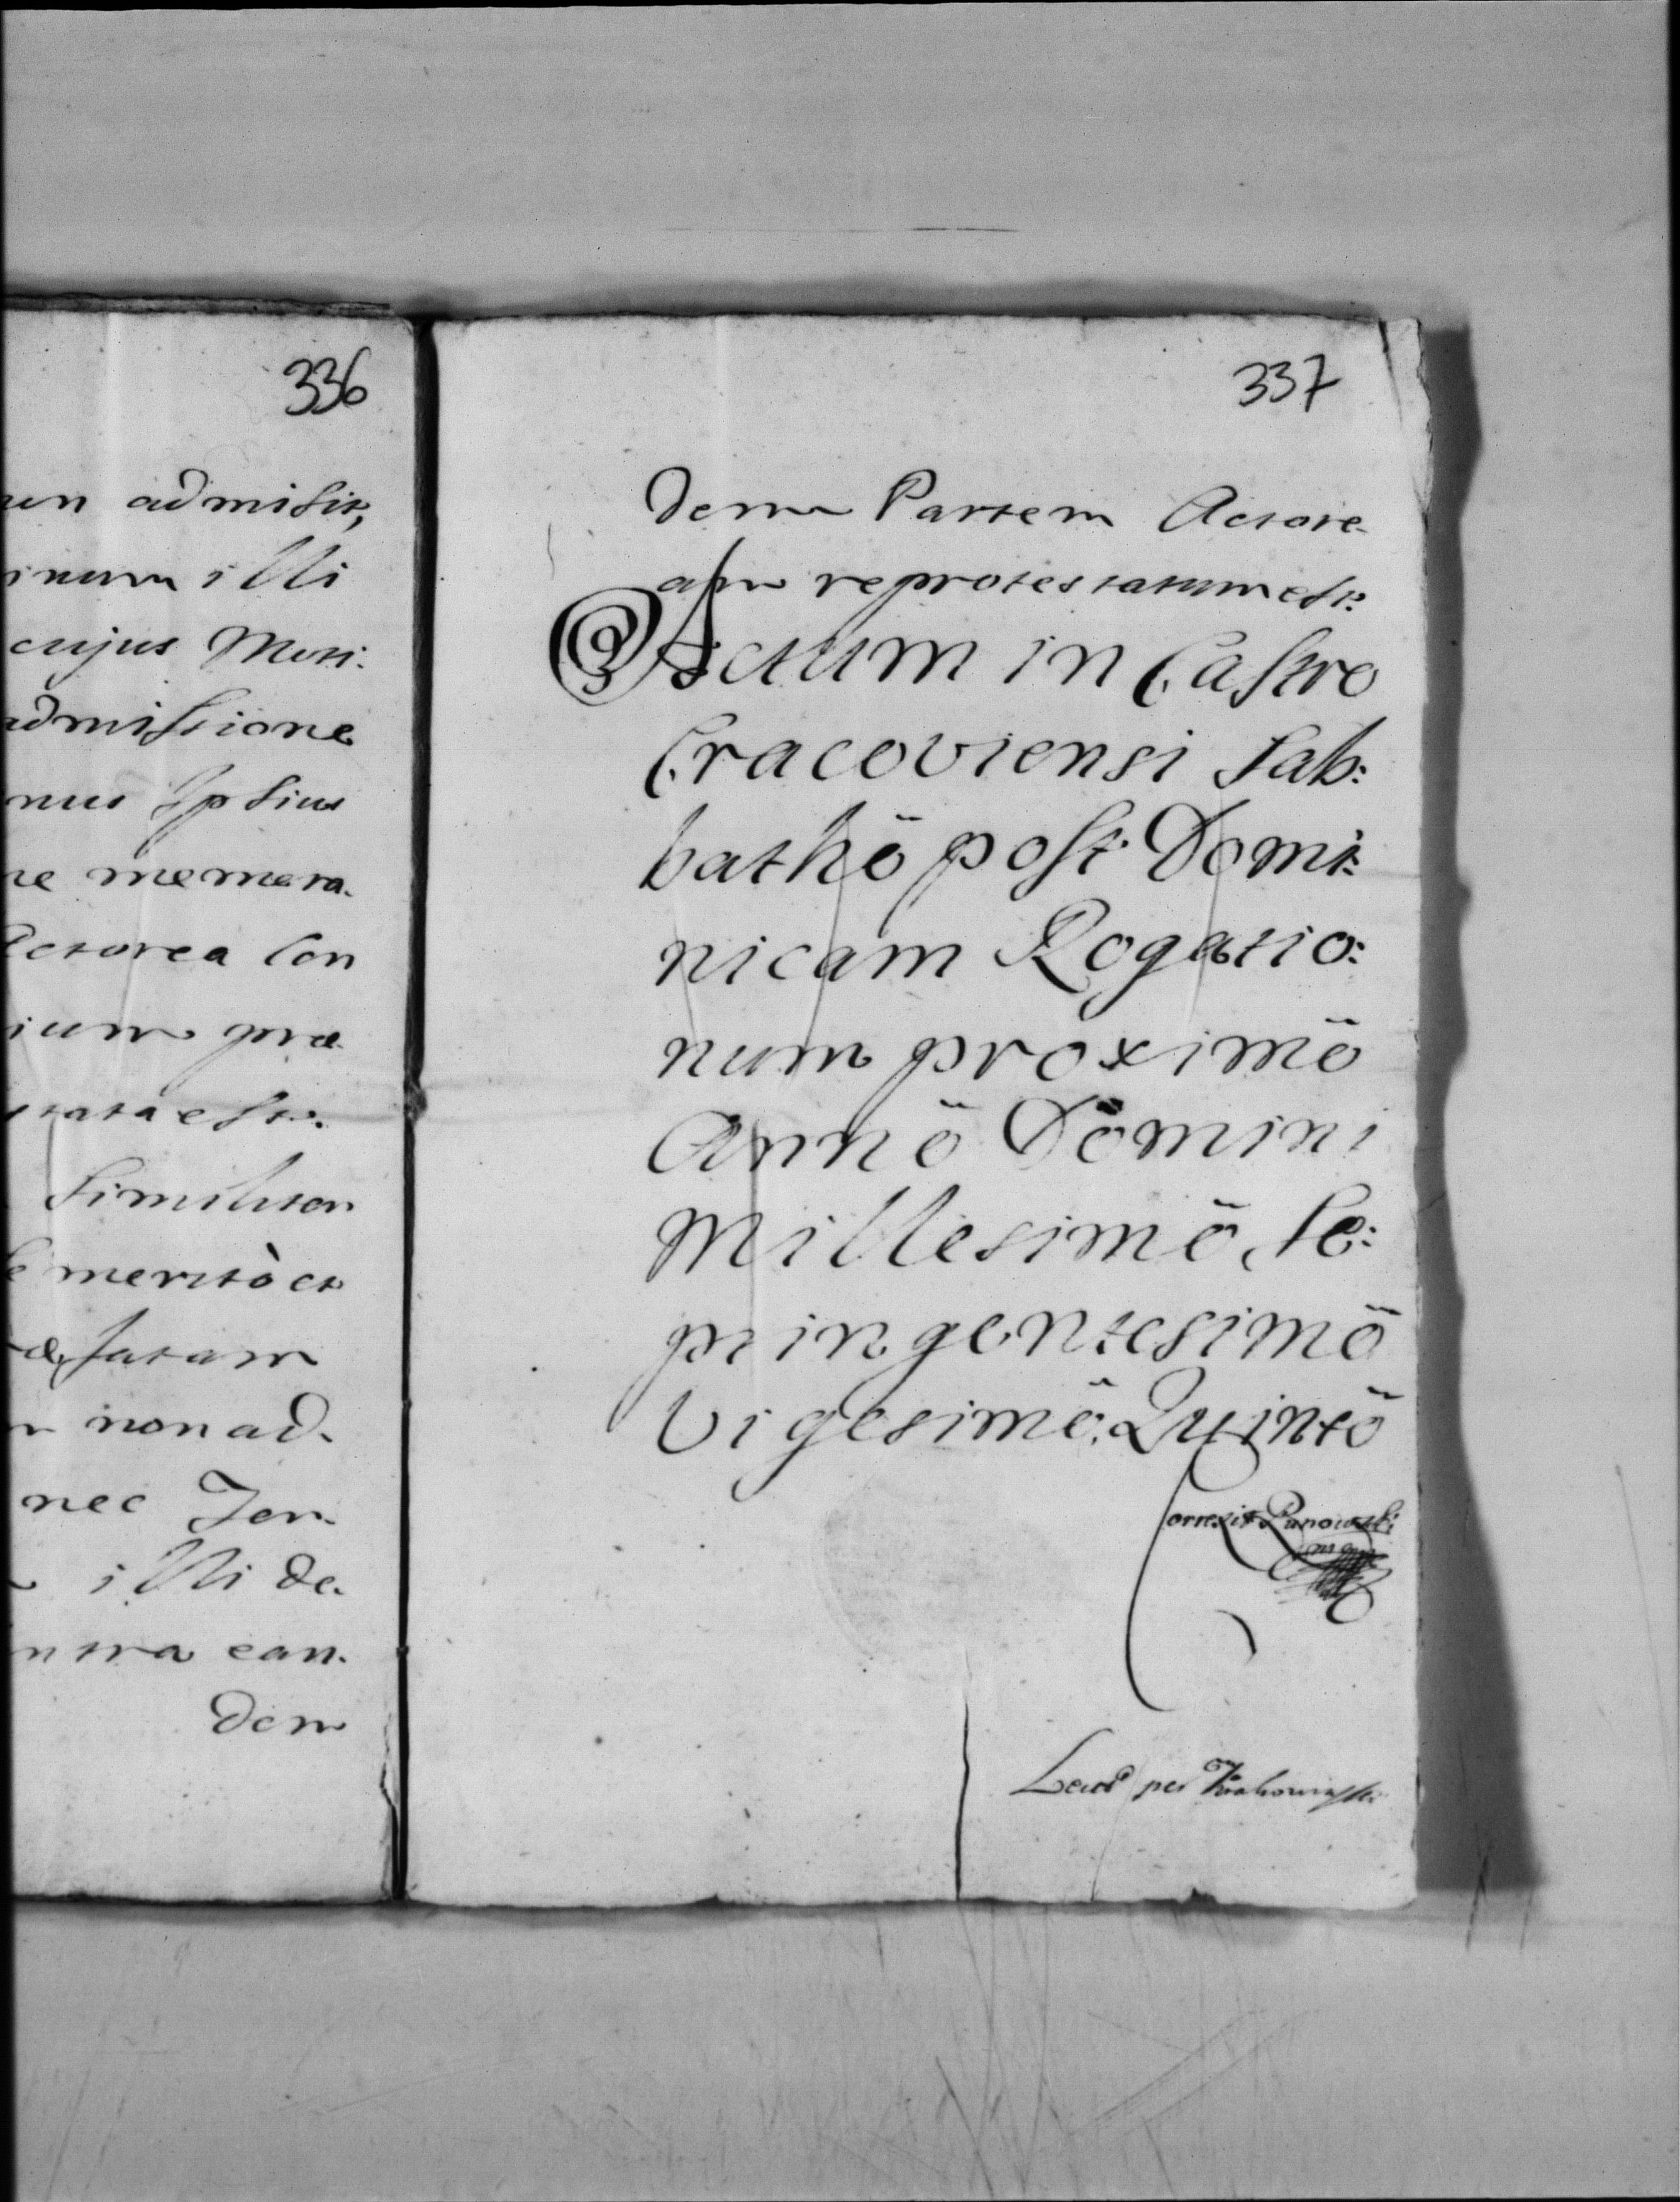 336
admisit,
illi
cujus Moti-
admissione
Ipsius
memora-
Actorea Con
prae
est.
Similiter
merito et
non ad-
nec Ter-
illi de-
ean-
dem
337
dem Partem Actore-
am reprotestatum est.
Actum in Castro
Cracoviensi Sab:
bathö post Domi:
nicam Rogatio:
num proximö
Annö Domini
Millesimö, Se:
ptingentesimö
Vigesimö Quintö
Correxit
Lect per